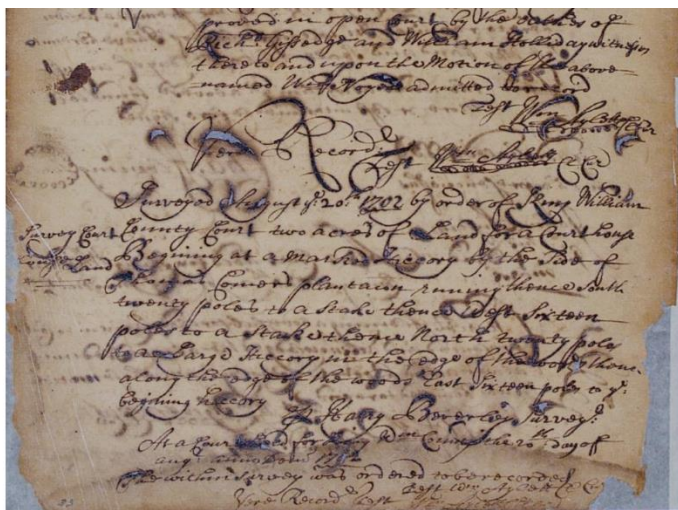 proved in open Court by the oathes of
Richd Gissedge and William Holliday witnesses
thereto and upon the Motion of the above
named Wm Noyes admitted to record
Test Wm Aylett Cl Cr
Vera Recordr
Test Wm Aylett Cl Cr
Surveyed August ye 20th 1702 by order of King William
Survey Court
County Court two acres of Land for a Courthouse
house Land
Begining at a Marked Hiccory by the side of
Thomas Comers plantacon runing thence South
twenty poles to a Stake thence West Sixteen
poles to a Stake thence North twenty poles
to a Large Hiccory in the edge of the woods thence
along the edge of the woods East Sixteen poles to ye
begining hiccory
Harry Beverley Surveyr
At a Court held for King Wm County the 20th day of
1702
The within Survey was ordered to be recorded
Test Wm Aylett Cl Cr
Vera Recordr Test